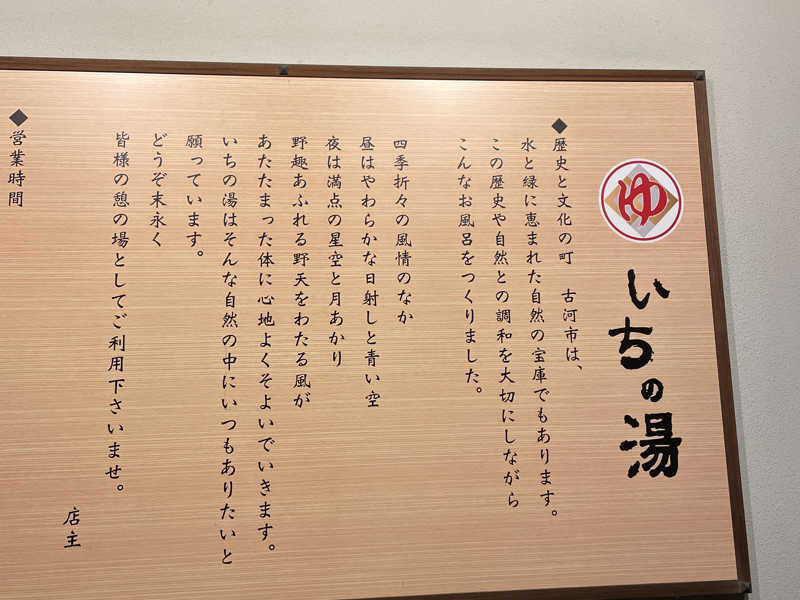 ゆ
いちの湯
◆歴史と文化の町　古河市は、
水と緑に恵まれた自然の宝庫でもあります。
この歴史や自然との調和を大切にしながら
こんなお風呂をつくりました。
四季折々の風情のなか
昼はやわらかな日射しと青い空
夜は満点の星空と月あかり
野趣あふれる野天をわたる風が
あたたまった体に心地よくそよいでいきます。
いちの湯はそんな自然の中にいつもありたいと
願っています。
どうぞ末永く
皆様の憩の場としてご利用下さいませ。
店主
◆営業時間